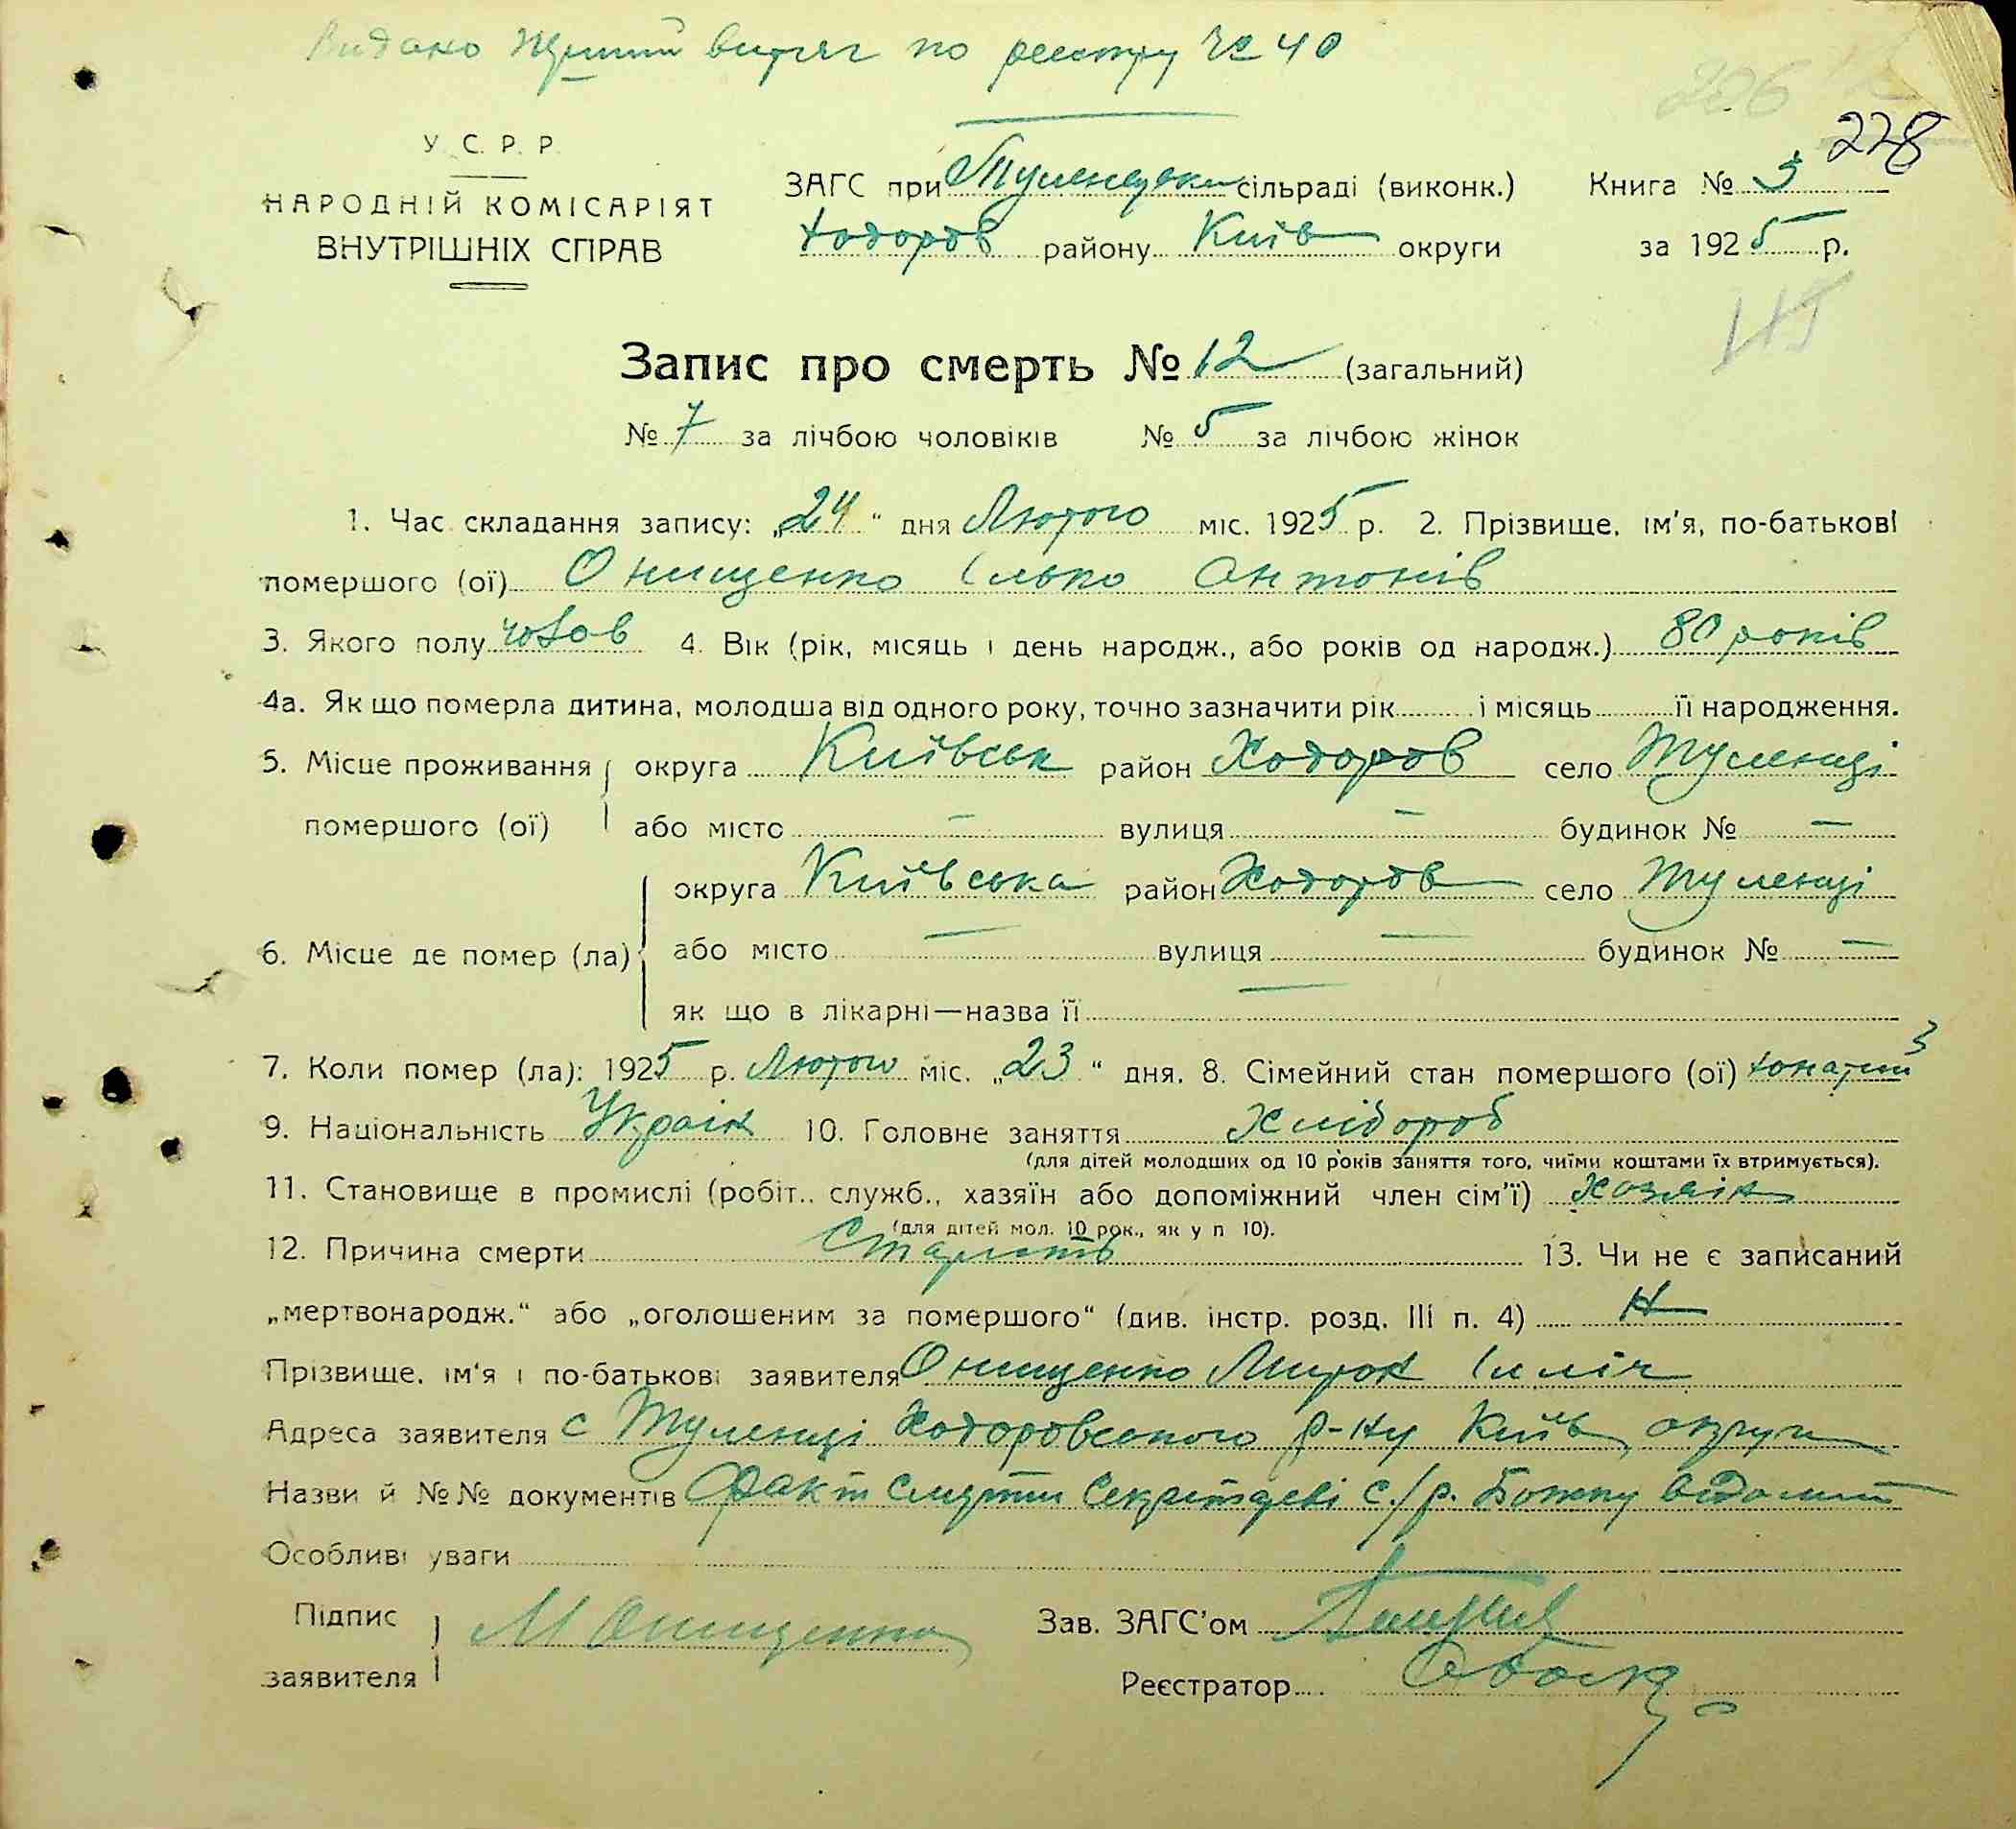 Видано перший витяг по реєстру № 40
226
228
У. С. Р. Р.
НАРОДНІЙ КОМІСАРІЯТ
ВНУТРІШНІХ СПРАВ
ЗАГС при Туленецьки сільраді (виконк.)
Ходоров району Київ округи
Книга № 3
за 1925 р.
Запис про смерть № 12 (загальний)
№ 7 за лічбою чоловіків № 5 за лічбою жінок
1. Час складання запису: „24“ дня Лютого міс. 1925 р. 2. Прізвище, ім'я, по-батькові
помершого (ої) Онищенко Ілько Антонів
3. Якого полу чолов 4. Вік (рік, місяць і день народж., або років од народж.) 80 років
4а. Як що померла дитина, молодша від одного року, точно зазначити рік і місяць її народження.
5. Місце проживання округа Київськ район Ходоров село Туленці
помершого (ої) або місто — вулиця — будинок № —
округа Київська район Ходоров село Туленці
6. Місце де помер (ла) або місто — вулиця — будинок № —
як що в лікарні—назва її —
7. Коли помер (ла): 1925 р. Лютого міс. „23“ дня. 8. Сімейний стан помершого (ої) жонатий 3
9. Національність Україн 10. Головне заняття Хлібороб
(для дітей молодших од 10 років заняття того, чиїми коштами їх втримується).
11. Становище в промислі (робіт., служб., хазяїн або допоміжний член сім'ї) Хозяїн
(для дітей мол. 10 рок., як у п 10).
12. Причина смерти Старість 13. Чи не є записаний
„мертвонародж.“ або „оголошеним за помершого“ (див. інстр. розд. III п. 4) Н
Прізвище, ім'я і по-батькові заявителя Онищенко Мирон Ілліч
Адреса заявителя с Туленці Ходоровського р-ну Київ округи
Назви й №№ документів Факт смерти Секретареві с./р. Божку відомий
Особливі уваги
Підпис
заявителя М Онищенко
Зав. ЗАГС'ом
Реєстратор